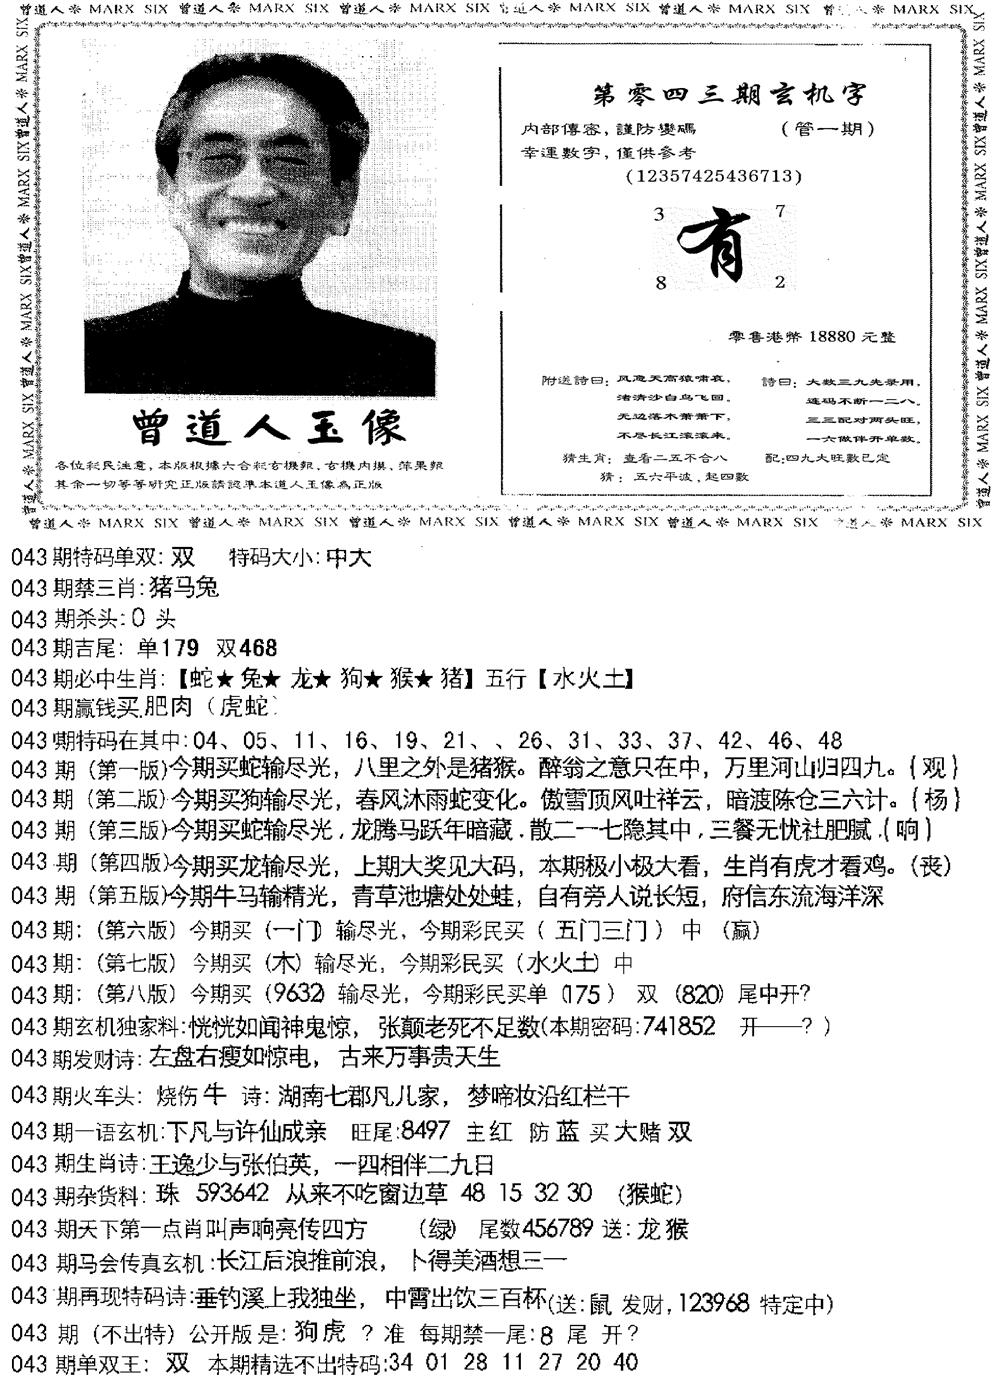 曾道人※ MARX SIX 曾道人※ MARX SIX 曾道人※ MARX SIX 曾道人※ MARX SIX 曾道人※ MARX SIX 曾道人※ MARX SIX
第零四三期玄机字
内部傳密，謹防變碼 （管一期）
幸運數字，僅供參考
(12357425436713)
3 7
有
8 2
零售港幣 18880 元整
附送詩曰：风急天高猿啸哀，
渚清沙白鸟飞回。
无边落木萧萧下，
不尽长江滚滚来。
詩曰：大数三九先录用，
连码不断一二八。
三三配对两头旺，
一六做伴开单数。
猜生肖：查看二五不合八 配:四九大旺數已定
猜：五六平波，起四數
曾道人玉像
各位彩民注意，本版根據六合彩玄機報，玄機内摸，苹果報
其余一切等等研究正版請認準本道人玉像為正版
曾道人※ MARX SIX 曾道人※ MARX SIX 曾道人※ MARX SIX 曾道人※ MARX SIX 曾道人※ MARX SIX 曾道人※ MARX SIX
043 期特码单双: 双 特码大小: 中大
043 期禁三肖: 猪马兔
043 期杀头: 0 头
043 期吉尾: 单179 双468
043 期必中生肖:【蛇★兔★龙★狗★猴★猪】五行【水火土】
043 期赢钱买 肥肉（虎蛇）
043 期特码在其中: 04、05、11、16、19、21、、26、31、33、37、42、46、48
043 期（第一版)今期买蛇输尽光，八里之外是猪猴。醉翁之意只在中，万里河山归四九。{观}
043 期（第二版)今期买狗输尽光，春风沐雨蛇变化。傲雪顶风吐祥云，暗渡陈仓三六计。{杨}
043 期（第三版)今期买蛇输尽光，龙腾马跃年暗藏．散二一七隐其中，三餐无忧社肥腻．{响}
043 期（第四版)今期买龙输尽光，上期大奖见大码，本期极小极大看，生肖有虎才看鸡。(丧)
043 期（第五版)今期牛马输精光，青草池塘处处蛙，自有旁人说长短，府信东流海洋深
043 期:（第六版）今期买（一门）输尽光，今期彩民买（五门三门）中（赢）
043 期:（第七版）今期买（木）输尽光，今期彩民买（水火土）中
043 期:（第八版）今期买（9632）输尽光，今期彩民买单（175） 双（820）尾中开?
043 期玄机独家料: 恍恍如闻神鬼惊，张颠老死不足数(本期密码:741852 开——? )
043 期发财诗: 左盘右瘦如惊电，古来万事贵天生
043 期火车头: 烧伤 牛 诗: 湖南七郡凡儿家，梦啼妆沿红栏干
043 期一语玄机: 下凡与许仙成亲 旺尾:8497 主 红 防 蓝 买 大赌 双
043 期生肖诗: 王逸少与张伯英，一四相伴二九日
043 期杂货料: 珠 593642 从来不吃窗边草 48 15 32 30 （猴蛇）
043 期天下第一点肖叫声响亮传四方 （绿） 尾数456789 送: 龙猴
043 期马会传真玄机: 长江后浪推前浪，卜得美酒想三一
043 期再现特码诗: 垂钓溪上我独坐，中霄出饮三百杯(送:鼠 发财,123968 特定中)
043 期（不出特）公开版是: 狗虎 ？准 每期禁一尾: 8 尾 开?
043 期单双王: 双 本期精选不出特码: 34 01 28 11 27 20 40